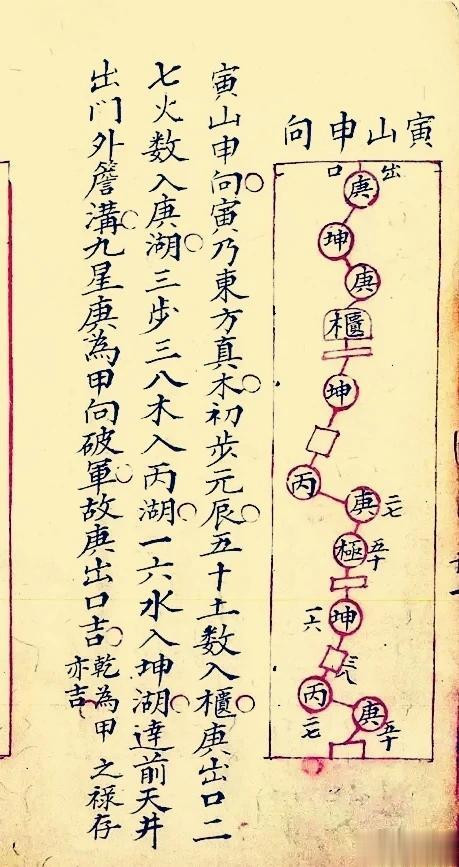 寅山申向
出口
庚
坤
庚
櫃
坤
丙
庚 二七
極 五十
坤 一六
三八
丙 二七
庚 五十
寅山申向○寅乃東方真木○初步元辰○五十土數入櫃○庚出口二
七火数入庚湖○三步三八木入丙湖○一六水入坤湖○達前天井
出门外簷溝○九星庚為甲向破軍○故庚出口吉○乾為甲之禄存
亦吉